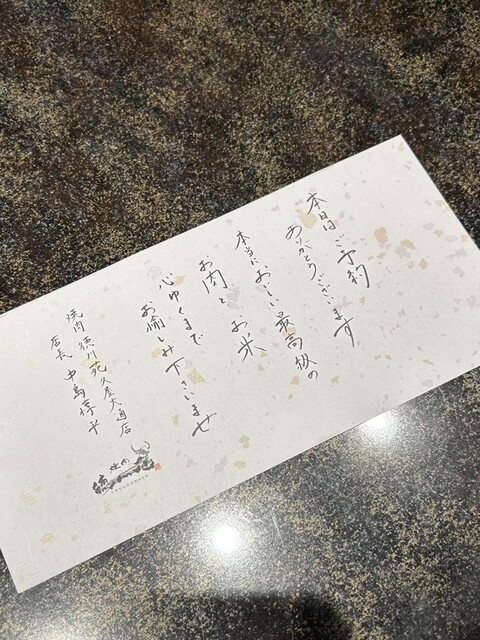 本日はご予約
ありがとうございます
本当においしい最高級の
お肉とお米
心ゆくまで
お愉しみ下さいませ
焼肉 徳川苑 久屋大通店
店長 中島 淳平
焼肉
TOKUGAWAEN